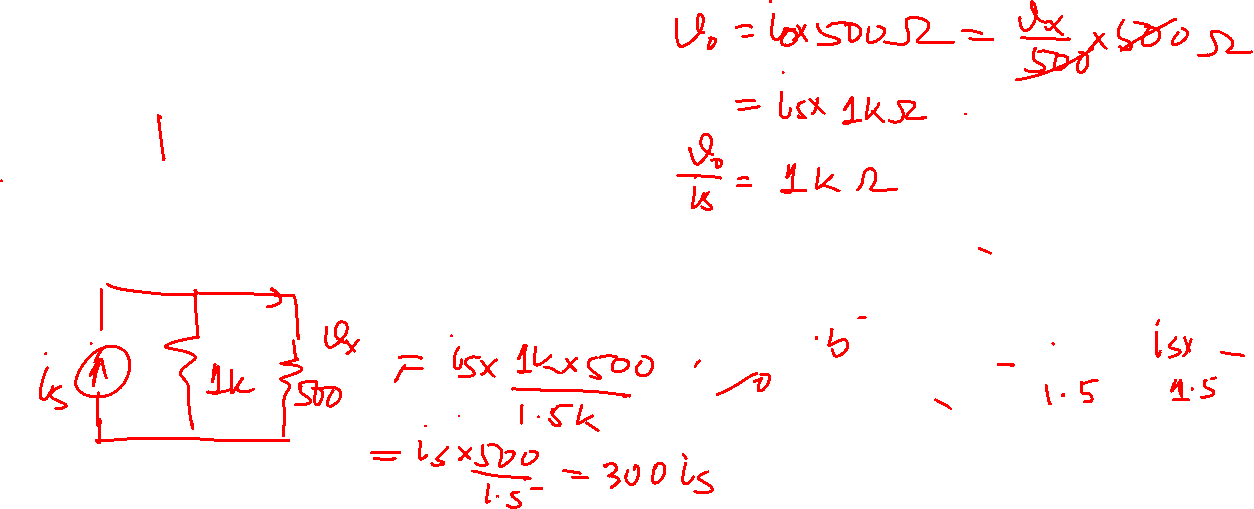 v₀ = i₀x500Ω = vx/500 x 500 Ω
= isx 1kΩ
v₀/is = 1k Ω
is 1k 500 vx = isx 1kx500/1.5k
= is x500/1.5 = 300 is
.5
1.5
isx
1.5